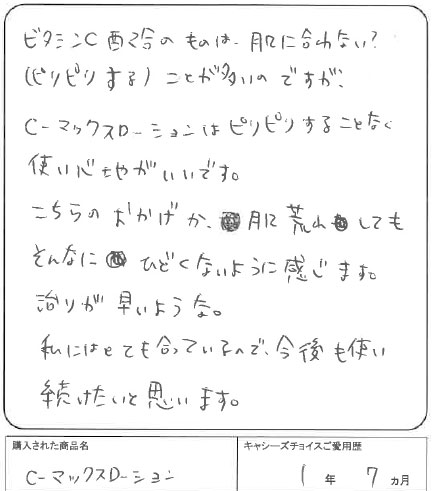 ビタミンC配合のものは、肌に合わない?
(ピリピリする)ことが多いのですが、
C-マックスローションはピリピリすることなく
使い心地がいいです。
こちらのおかげか、肌荒れしても
そんなにひどくないように感じます。
治りが早いような。
私にはとても合っているので、今後も使い
続けたいと思います。
購入された商品名
キャシーズチョイスご愛用歴
C-マックスローション
1年7ヵ月